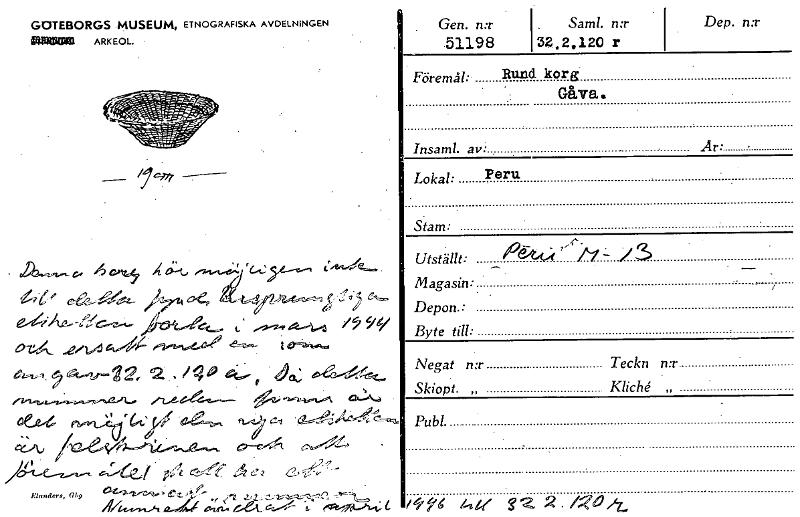 GÖTEBORGS MUSEUM, ETNOGRAFISKA AVDELNINGEN
ARKEOL.
19 cm
Denna korg hör möjligen inte
till detta fynd. Ursprungliga
etiketten borta i mars 1944
och ersatt med en som
angav 32.2.120 a. Då detta
nummer redan finns är
det möjligt den nya etiketten
är felskriven och att
föremålet skall ha ett
annat nummer
Numret ändrat i april 1946 till 32.2.120 r
Elanders, Gbg
Gen. n:r
51198
Saml. n:r
32.2.120 r
Dep. n:r
Föremål: Rund korg
Gåva.
Insaml. av: År:
Lokal: Peru
Stam:
Utställt: Peru M-13
Magasin:
Depon.:
Byte till:
Negat n:r Teckn n:r
Skiopt. „ Kliché „
Publ.